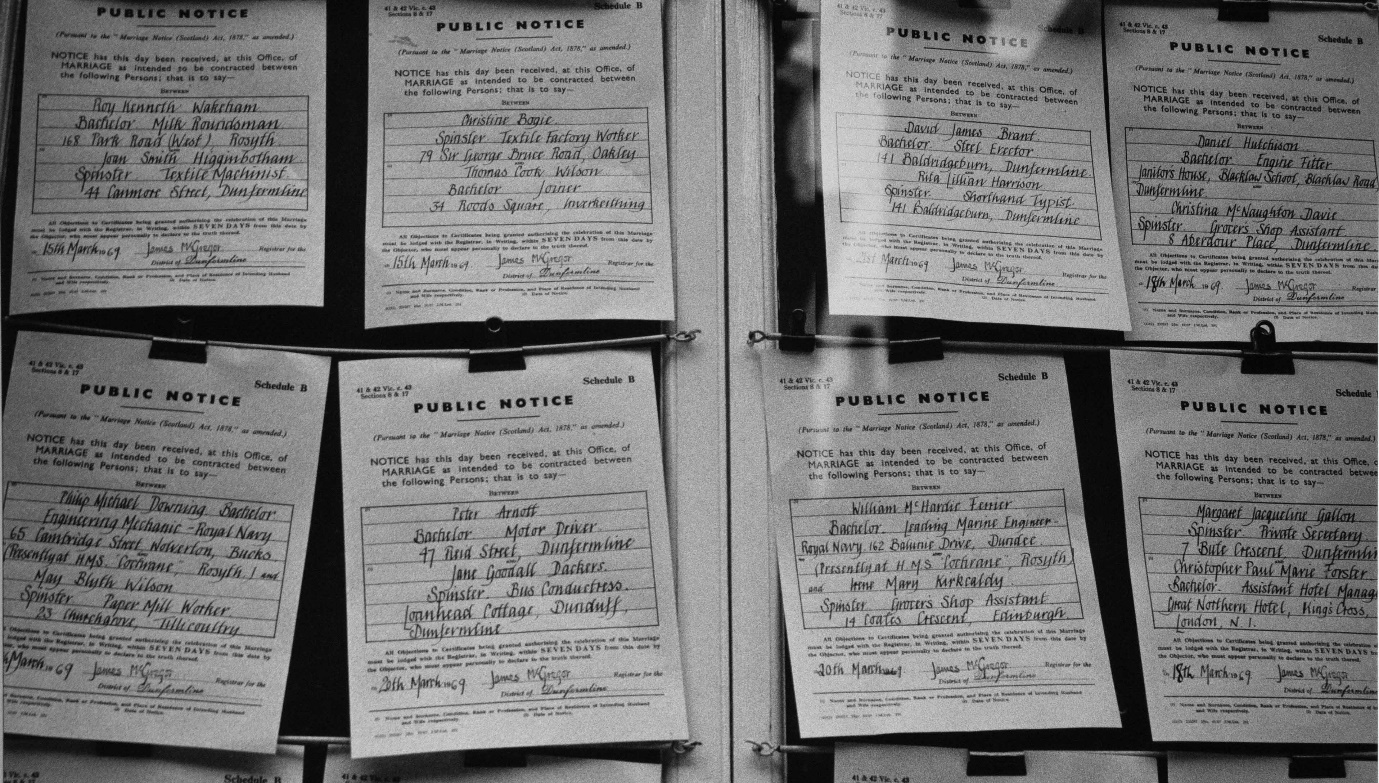 PUBLIC NOTICE
(Pursuant to the "Marriage Notice (Scotland) Act, 1878," as amended.)
NOTICE has this day been received, at this Office, of
MARRIAGE as intended to be contracted between
the following Persons; that is to say—
BETWEEN
Roy Kenneth Wakeham
Bachelor Milk Roundsman
168 Park Road (West), Rosyth
and
Joan Smith Higginbotham
Spinster Textile Machinist
44 Canmore Street, Dunfermline
All Objections to Certificates being granted authorising the celebration of this Marriage
must be lodged with the Registrar, in Writing, within SEVEN DAYS from this date by
the Objector, who must appear personally to declare to the truth thereof.
15th March 1969 James McGregor Registrar for the
District of Dunfermline
(1) Name and Surname, Condition, Rank or Profession, and Place of Residence of Intending Husband
and Wife respectively. (2) Date of Notice.
Schedule B
PUBLIC NOTICE
(Pursuant to the "Marriage Notice (Scotland) Act, 1878," as amended.)
NOTICE has this day been received, at this Office, of
MARRIAGE as intended to be contracted between
the following Persons; that is to say—
BETWEEN
Christine Bogie
Spinster Textile Factory Worker
79 Sir George Bruce Road, Oakley
and
Thomas Cook Wilson
Bachelor Joiner
34 Roods Square, Inverkeithing
All Objections to Certificates being granted authorising the celebration of this Marriage
must be lodged with the Registrar, in Writing, within SEVEN DAYS from this date by
the Objector, who must appear personally to declare to the truth thereof.
15th March 1969 James McGregor Registrar for the
District of Dunfermline
(1) Name and Surname, Condition, Rank or Profession, and Place of Residence of Intending Husband
and Wife respectively. (2) Date of Notice.
41 & 42 Vic. c. 43
Sections 8 & 17
Schedule B
PUBLIC NOTICE
(Pursuant to the "Marriage Notice (Scotland) Act, 1878," as amended.)
NOTICE has this day been received, at this Office, of
MARRIAGE as intended to be contracted between
the following Persons; that is to say—
BETWEEN
David James Brant
Bachelor Steel Erector
141 Baldridgeburn, Dunfermline
and
Rita Lillian Harrison
Spinster Shorthand Typist
141 Baldridgeburn, Dunfermline
All Objections to Certificates being granted authorising the celebration of this Marriage
must be lodged with the Registrar, in Writing, within SEVEN DAYS from this date by
the Objector, who must appear personally to declare to the truth thereof.
March 1969 James McGregor Registrar for the
District of Dunfermline
(1) Name and Surname, Condition, Rank or Profession, and Place of Residence of Intending Husband
and Wife respectively. (2) Date of Notice.
41 & 42 Vic. c. 43
Sections 8 & 17
Schedule B
PUBLIC NOTICE
(Pursuant to the "Marriage Notice (Scotland) Act, 1878," as amended.)
NOTICE has this day been received, at this Office, of
MARRIAGE as intended to be contracted between
the following Persons; that is to say—
BETWEEN
Daniel Hutchison
Bachelor Engine Fitter
Janitors House, Blacklaw School, Blacklaw Road
Dunfermline
Christina McNaughton Davie
Spinster Grocers Shop Assistant
8 Aberdour Place, Dunfermline
All Objections to Certificates being granted authorising the celebration of this
must be lodged with the Registrar, in Writing, within SEVEN DAYS from this
the Objector, who must appear personally to declare to the truth thereof.
18th March 1969 James McGregor
District of Dunfermline
(1) Name and Surname, Condition, Rank or Profession, and Place of Residence of Intending
and Wife respectively. (2) Date of Notice.
41 & 42 Vic. c. 43
Sections 8 & 17
Schedule B
PUBLIC NOTICE
(Pursuant to the "Marriage Notice (Scotland) Act, 1878," as amended.)
NOTICE has this day been received, at this Office, of
MARRIAGE as intended to be contracted between
the following Persons; that is to say—
BETWEEN
Philip Michael Downing Bachelor
Engineering Mechanic - Royal Navy
65 Cambridge Street, Wolverton, Bucks
(Presently at H.M.S. "Cochrane", Rosyth) and
May Blyth Wilson
Spinster Paper Mill Worker
23 Churchgrove, Tillicoultry
Objections to Certificates being granted authorising the celebration of this Marriage
lodged with the Registrar, in Writing, within SEVEN DAYS from this date by
Objector, who must appear personally to declare to the truth thereof.
March 1969 James McGregor Registrar for the
District of Dunfermline
Surname, Condition, Rank or Profession, and Place of Residence of Intending Husband
and Wife respectively. (2) Date of Notice.
41 & 42 Vic. c. 43
Sections 8 & 17
Schedule B
PUBLIC NOTICE
(Pursuant to the "Marriage Notice (Scotland) Act, 1878," as amended.)
NOTICE has this day been received, at this Office, of
MARRIAGE as intended to be contracted between
the following Persons; that is to say—
BETWEEN
Peter Arnott
Bachelor Motor Driver
47 Reid Street, Dunfermline
and
Jane Goodall Dackers.
Spinster Bus Conductress.
Loanhead Cottage, Dunduff,
Dunfermline
All Objections to Certificates being granted authorising the celebration of this Marriage
must be lodged with the Registrar, in Writing, within SEVEN DAYS from this date by
the Objector, who must appear personally to declare to the truth thereof.
20th March 1969 James McGregor Registrar for the
District of Dunfermline
(1) Name and Surname, Condition, Rank or Profession, and Place of Residence of Intending Husband
and Wife respectively. (2) Date of Notice.
41 & 42 Vic. c. 43
Sections 8 & 17
PUBLIC NOTICE
(Pursuant to the "Marriage Notice (Scotland) Act, 1878," as amended.)
NOTICE has this day been received, at this Office, of
MARRIAGE as intended to be contracted between
the following Persons; that is to say—
BETWEEN
William McHardie Ferrier
Bachelor. Leading Marine Engineer-
Royal Navy. 162 Balunie Drive, Dundee
(Presently at H.M.S "Cochrane", Rosyth)
and Irene Mary Kirkcaldy
Spinster Grocers Shop Assistant
14 Coates Crescent, Edinburgh
All Objections to Certificates being granted authorising the celebration of this Marriage
must be lodged with the Registrar, in Writing, within SEVEN DAYS from this date by
the Objector, who must appear personally to declare to the truth thereof.
20th March 1969 James McGregor Registrar for the
District of Dunfermline
(1) Name and Surname, Condition, Rank or Profession, and Place of Residence of Intending Husband
and Wife respectively. (2) Date of Notice.
41 & 42 Vic. c. 43
Sections 8 & 17
Schedule B
PUBLIC NOTICE
(Pursuant to the "Marriage Notice (Scotland) Act, 1878," as amended.)
NOTICE has this day been received, at this Office,
MARRIAGE as intended to be contracted between
the following Persons; that is to say—
BETWEEN
Margaret Jacqueline Gallon
Spinster Private Secretary
7 Bute Crescent, Dunfermlin
Christopher Paul Marie Forster
Bachelor. Assistant Hotel Manag
Great Northern Hotel, King's Cross,
London, N.1.
All Objections to Certificates being granted authorising the celebration of this
must be lodged with the Registrar, in Writing, within SEVEN DAYS from this
the Objector, who must appear personally to declare to the truth thereof.
18th March 1969 James McGregor
District of Dunfermline
(1) Name and Surname, Condition, Rank or Profession, and Place of Residence of
and Wife respectively. (2) Date of Notice.
Schedule B
41 & 42 Vic. c. 43
41 & 42 Vic. c. 43